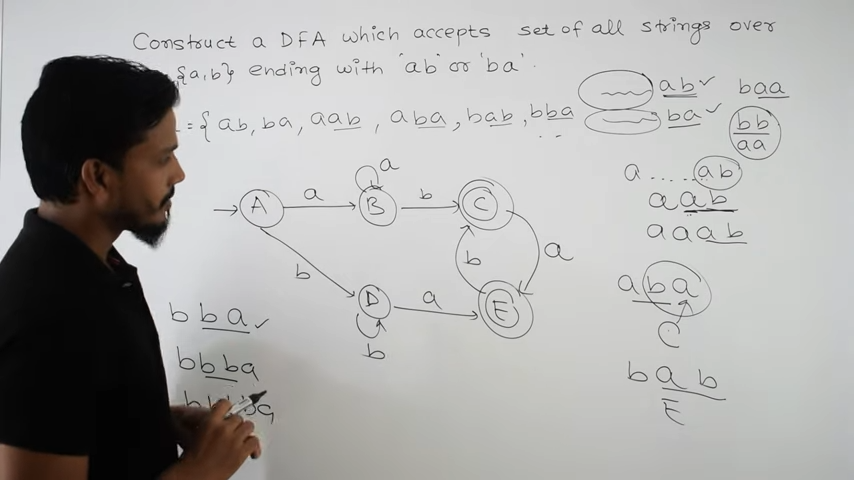 Construct a DFA which accepts set of all strings over
{a,b} ending with 'ab' or 'ba'.
= { ab, ba, aab, aba, bab, bba ...
ab✓ baa
ba✓ bb
aa
a.....ab
aab
aaab
aba
C
bab
E
A a B b C
a
b
D a E
b
b
a
bba✓
bbba